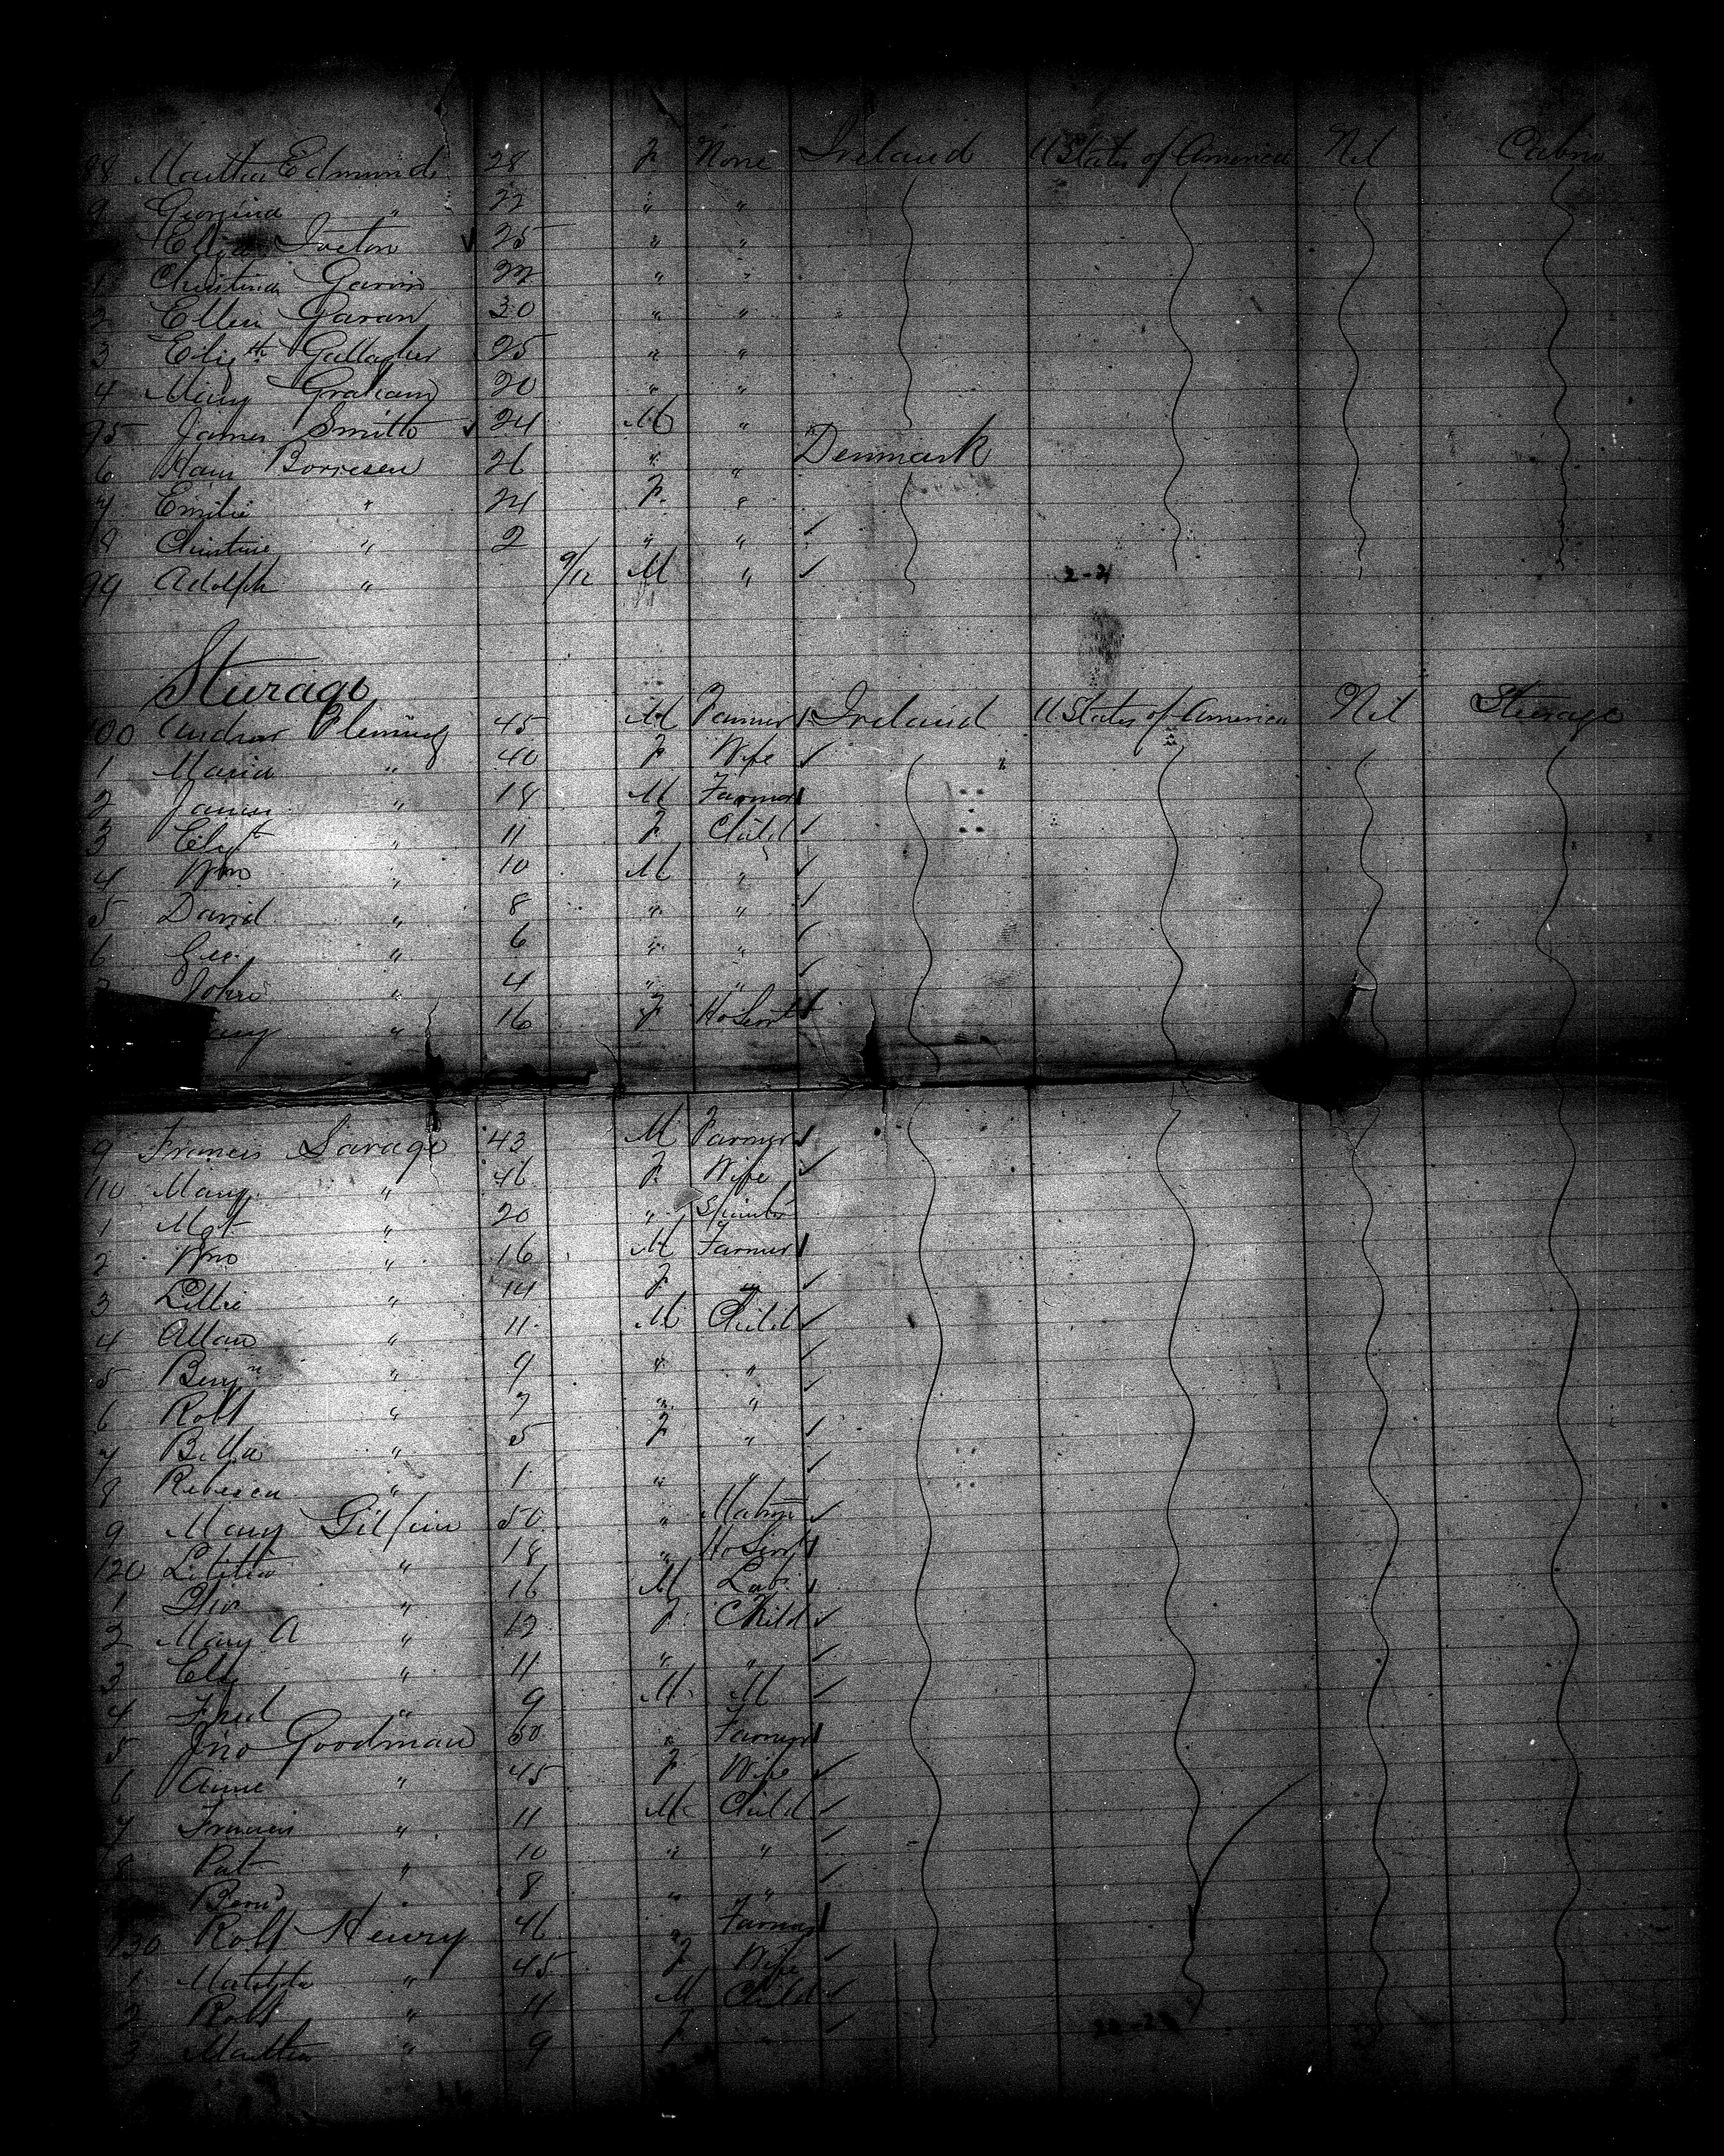 88 Martha Edmunds 28 F None Ireland U States of America Nil Cabin
9 Georgina " 22 " "
Eliza 25 " "
1 Christina Gavin 22 " "
2 Ellen Gavan 30 " "
3 Elizth Gallagher 25 " "
4 Mary Graham 20 " "
95 James Smith 24 M "
6 Borresen 26 " " Denmark
7 Emilie " 24 F "
8 Christine " 2 " "
99 Adolph " 9/12 M " 2-21
Steerage
100 Andrew Fleming 45 M Farmer Ireland U States of America Nil Steerage
1 Maria " 40 F Wife
2 James " 18 M Farmer
3 Elizth " 11 F Child
4 Wm " 10 M "
5 David " 8 " "
6 Geo " 6 " "
7 John " 4 " "
" 16 F Ho Servt
9 Francis Savage 43 M Farmer
110 Mary " 46 F Wife
1 Mgt " 20 " Spinster
2 Wm " 16 M Farmer
3 Lillie " 14 F "
4 Allan " 11 M Child
5 Benjn " 9 " "
6 Robt " 7 " "
7 Bella " 5 F "
8 Rebecca " 1 " "
9 Mary 50 " Matron
120 Letitia " 18 " Ho Servt
1 " 16 M Labr
2 Mary A " 12 F Child
3 " 11 " "
4 Fred " 9 M
5 Jno Goodman 50 " Farmer
6 Anne " 45 F Wife
7 Francis " 11 M Child
8 Pat " 10 " "
Bernd " 8 " "
130 Robt Henry 46 " Farmer
1 Matilda " 45 F Wife
2 Robt " 11 M Child
3 Martha " 9 F "